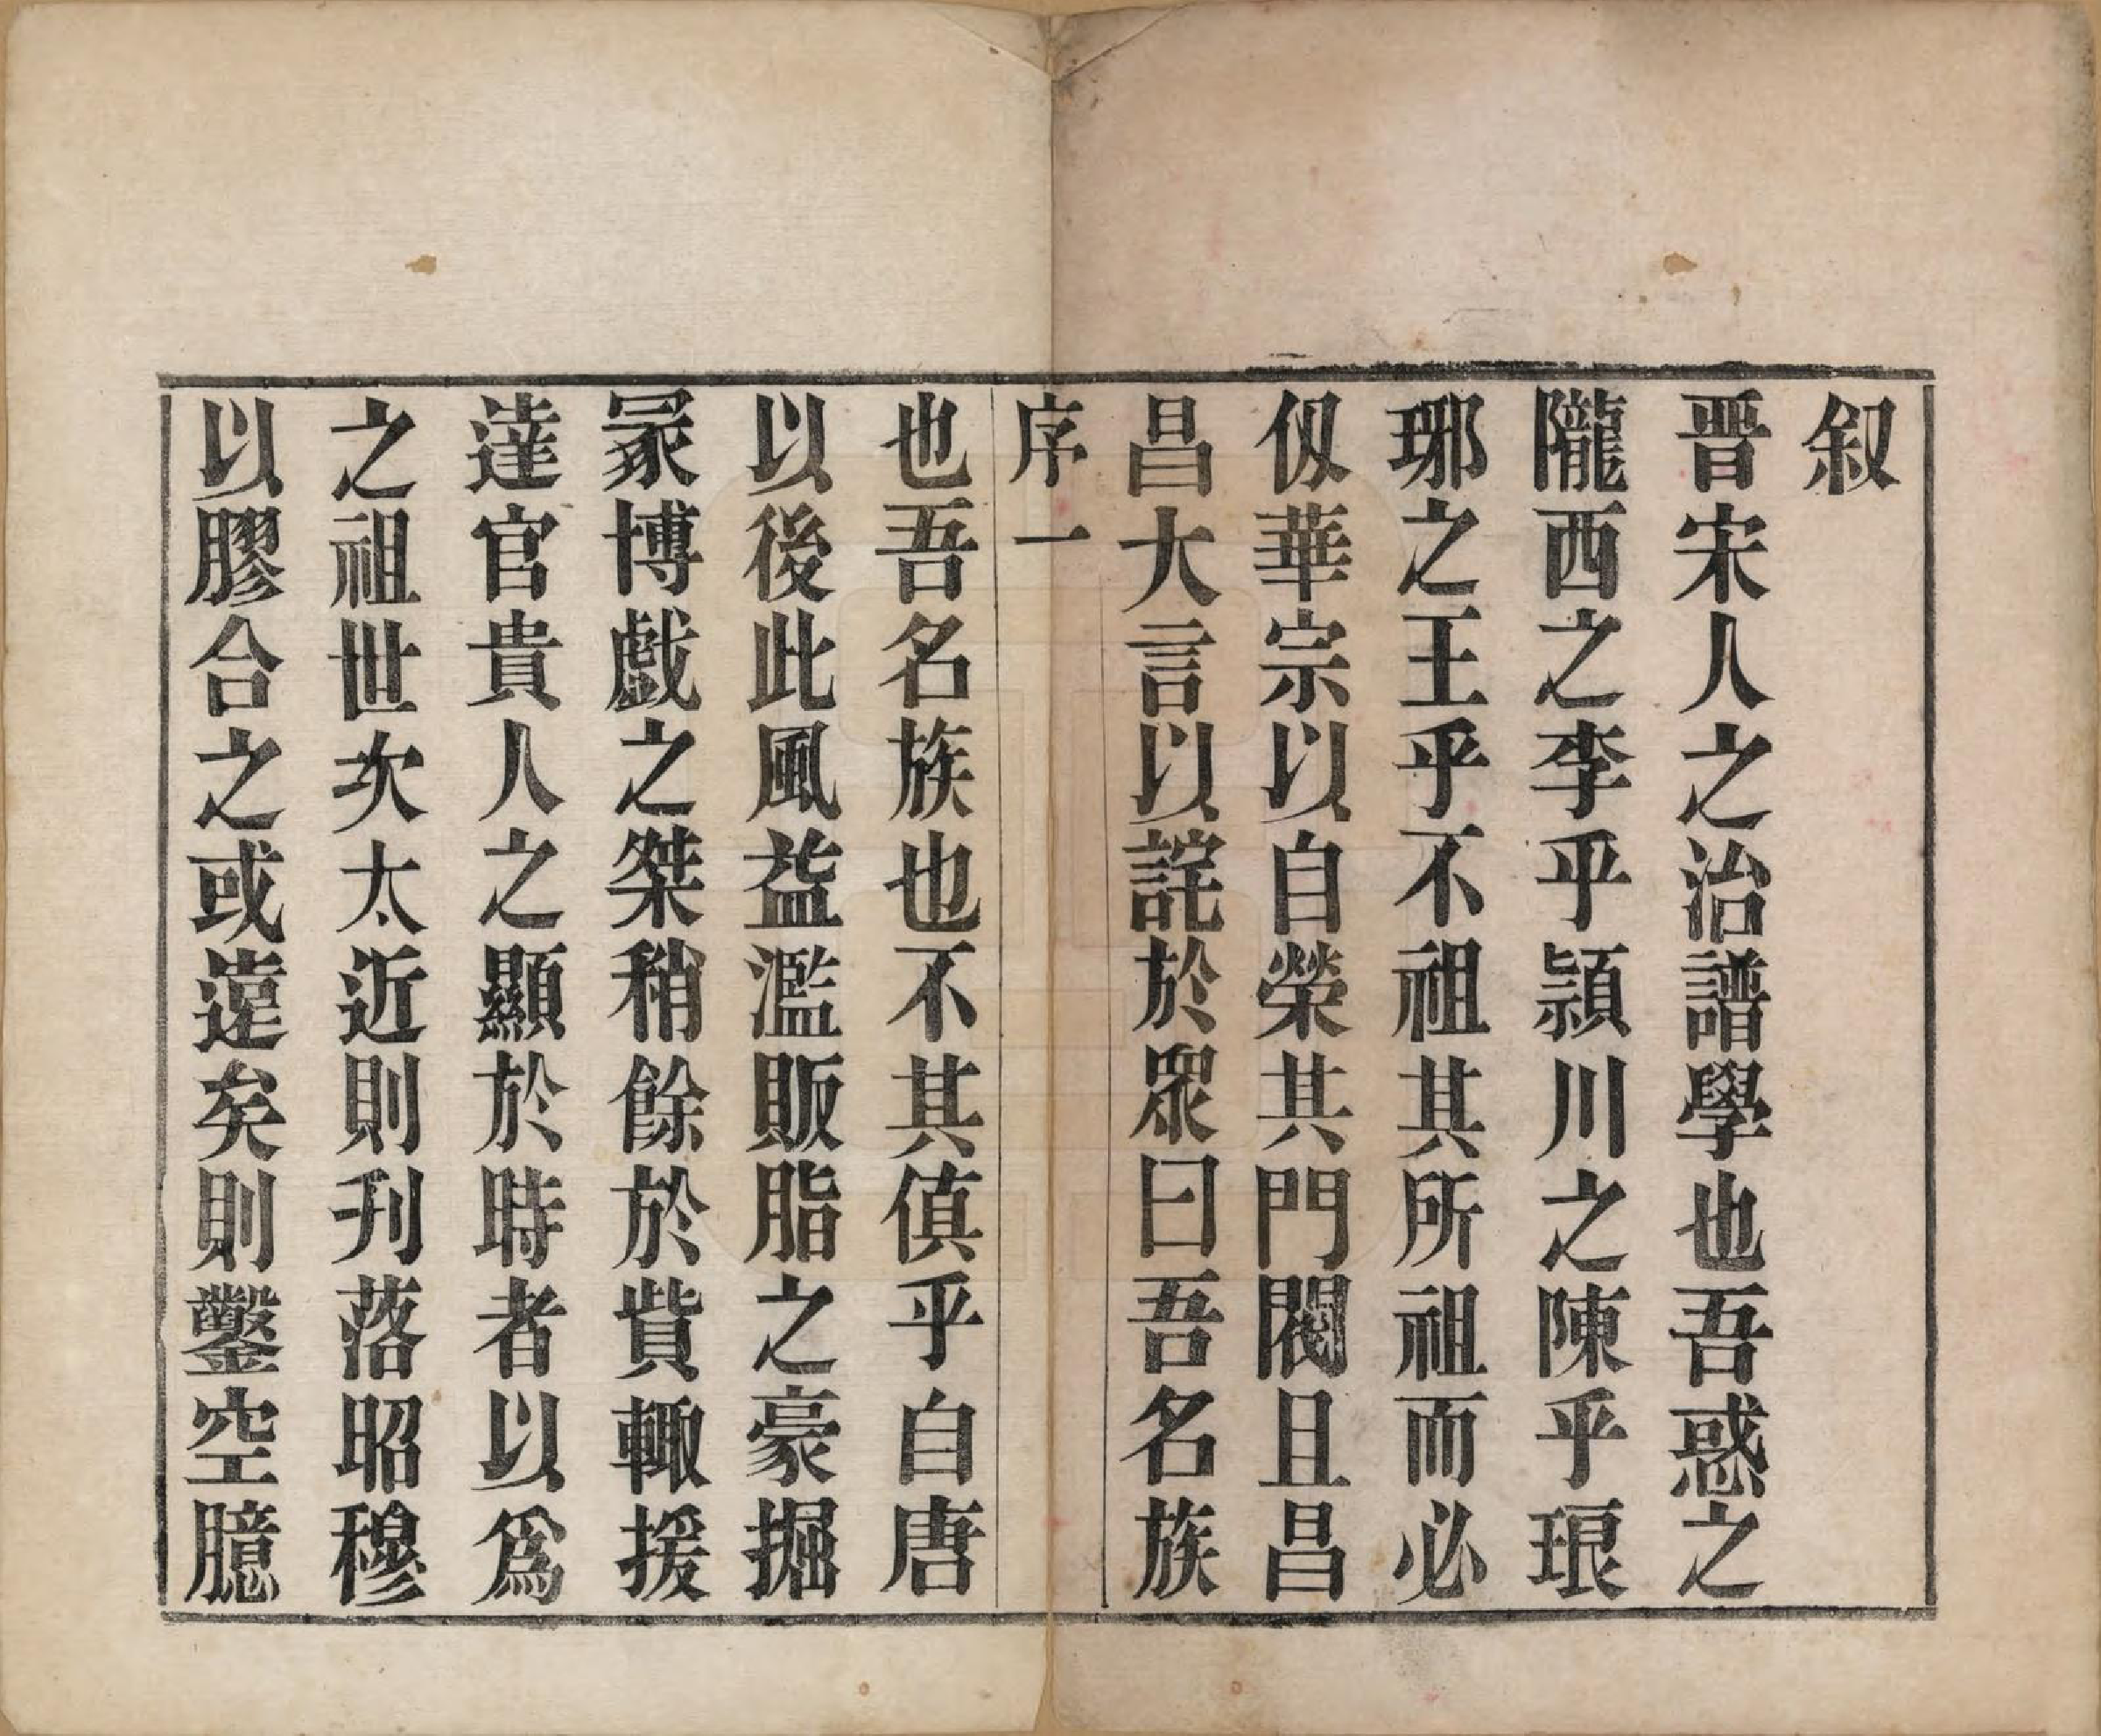 叙
晋宋人之治譜學也吾惑之
隴西之李乎頴川之陳乎琅
琊之王乎不祖其所祖而必
仭華宗以自榮其門閥且昌
昌大言以詫於眾曰吾名族
序一
也吾名族也不其傎乎自唐
以後此風益濫販脂之豪掘
冢博戲之桀稍餘於貲輙援
達官貴人之顯於時者以爲
之祖世次太近則刋落昭穆
以膠合之或遠矣則鑿空臆